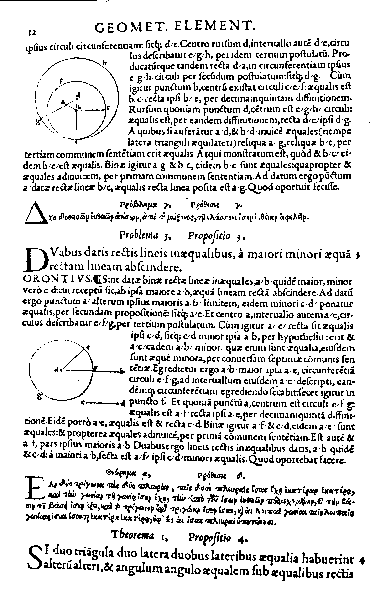 12 GEOMET. ELEMENT.
ipsius circuli circunferentiam: sitq; d e. Centro rursum d, interuallo autē d e, circu
lus describatur e g h, per idem tertium postulatū. Pro
ducatúrque tandem recta d a, in circunferentiam ipsius
e g h circuli per secūdum postulatum: sitq; d g. Cùm
igitur punctum b, centrū existat circuli c e f: æqualis est
b c recta ipsi b e, per decimāquintam diffinitionem.
Rursum quoniam punctum d, cētrum est e g h circuli:
æqualis est, per eandem diffinitionem, recta d e ipsi d g.
A quibus si auferātur a d, & b d inuicē æquales (nempe
latera trianguli æquilateri) reliqua a g, reliquæ b e, per
tertiam communem sentētiam erit æqualis. At qui monstratum est, quòd & b c ei-
dem b e est æqualis. Binæ igitur a g & b c, eidem b e sunt æquales: quapropter &
æquales adinuicem, per primam communem sententiam. Ad datum ergo pūctum
a datæ rectæ lineæ b c, æqualis recta linea posita est a g. Quod oportuit fecisse.
Problema 3, Propositio 3.
DVabus datis rectis lineis inæqualibus, à maiori minori æquā 3
rectam lineam abscindere.
ORONTIVS. Sint datæ binæ rectæ lineæ inæquales, a b quidē maior, minor
verò e datū receptū sit, ab ipsa maiore a b, æquā lineam rectā abscindere. Ad datū
ergo punctum a alterum ipsius maioris a b limitem, eidem minori c d ponatur
æqualis, per secundam propositionē: sitq; a e. Et centro a, interuallo autem a e, cir-
culus describatur e f g, per tertium postulatum. Cùm igitur a e recta sit æqualis
ipsi c d, sitq; c d minor ipsa a b, per hypothesim: erit &
a e eadem a b minor. quæ enim sunt æqualia, eiusdem
sunt æquè minora, per conuersam septimæ cōmunis sen
tētiæ. Egredietur ergo a b maior ipsa a e, circunferētiā
circuli e f g, ad interuallum eiusdem a e descripti, ean-
démq; circunferentiam egrediendo secabit: secet igitur in
puncto f. Et quoniā punctū a, centrum est circuli e f g:
æqualis est a f recta ipsi a e, per decimāquintā diffini-
tionē. Eidē porrò a e, æqualis est & recta c d. Binæ igitur a f & c d, eidem a e sunt
æquales: & propterea æquales adinuicē, per primā cōmunem sentētiam. Est autē &
a f, pars ipsius maioris a b. Duabus ergo lineis rectis inæqualibus datis, a b quidē
& c d: à maiori a b, secta est a f ipsi c d minori æqualis. Quod oportebat facere.
Theorema 1, Propositio 4.
SI duo triāgula duo latera duobus lateribus æqualia habuerint 4
alterū alteri, & angulum angulo æqualem sub æqualibus rectis